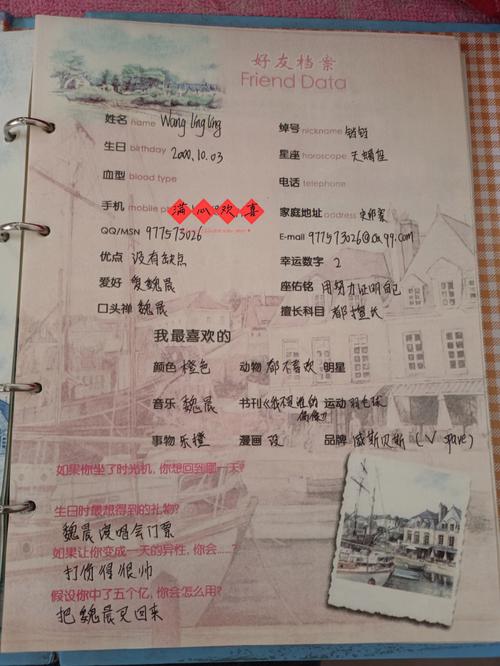 好友档案
Friend Data
姓名 name Wang ling ling 绰号 nickname 铃铃
生日 birthday 2000.10.03 星座 horoscope 天蝎座
血型 blood type 电话 telephone
手机 mobile 满心欢喜 家庭地址 address
QQ/MSN 977573026 E-mail 977573026@qq.com
优点 没有缺点 幸运数字 2
爱好 爱魏晨 座佑铭 用努力证明自己
口头禅 魏晨 擅长科目 都擅长
我最喜欢的
颜色 橙色 动物 都不喜欢 明星
音乐 魏晨 书刊 运动 羽毛球
事物 乐橙 漫画 没 品牌 威斯贝斯
如果你坐了时光机,你想回到哪一天?
生日时最想得到的礼物?
魏晨演唱会门票
如果让你变成一天的异性,你会.....?
打份得很帅
假设你中了五个亿,你会怎么用?
把魏晨见回来